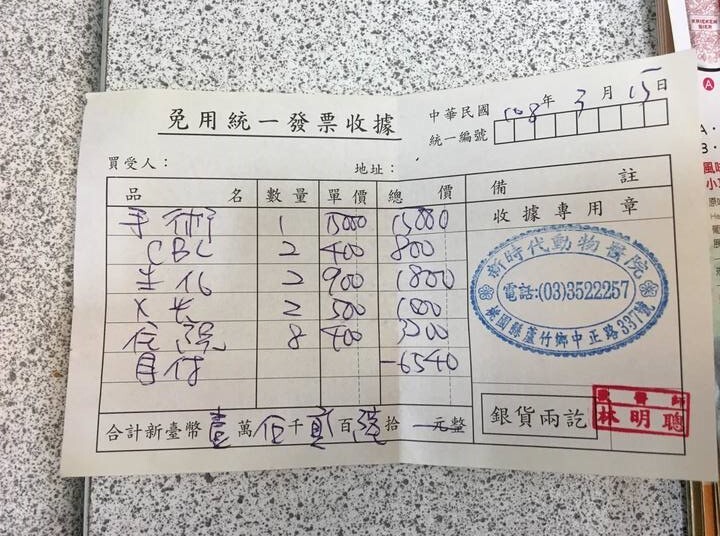 免用統一發票收據
中華民國 108 年 3 月 15 日
統一編號
買受人：
地址：
品 名 數量 單價 總 價 備 註
手術 1 15000 15000
CBC 2 400 800
生化 2 900 1800
X光 2 500 1000
住院 8 400 3200
自付 -6540
合計新臺幣 壹 萬 伍 千 貳 百 陸 拾 元整
收據專用章
新時代動物醫院
電話:(03)3522257
桃園縣蘆竹鄉中正路337號
銀貨兩訖
獸醫師
林明聰
KRIEKEN
BIER
A